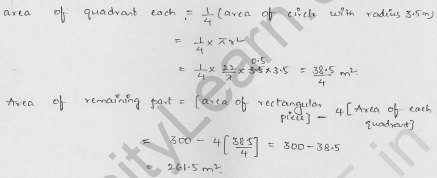 area of quadrant each = 1/4 (area of circle with radius 3.5m)
= 1/4 × πr²
= 1/4 × 22/7 × 3.5 × 3.5 = 38.5/4 m².
0.5
Area of remaining part = [area of rectangular piece] - 4[Area of each quadrant]
= 300 - 4[38.5/4] = 300 - 38.5
= 261.5 m².